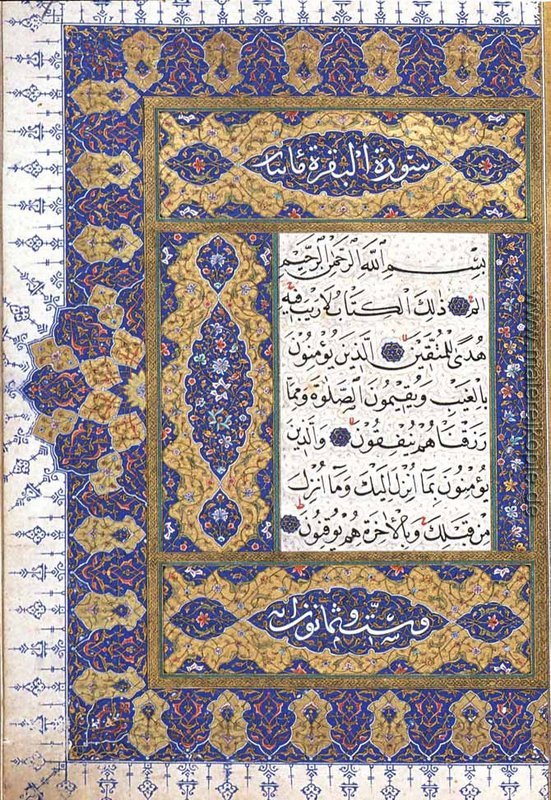 سورة البقرة مائتان
بِسْمِ اللَّهِ الرَّحْمَٰنِ الرَّحِيمِ
الم ذَٰلِكَ الْكِتَابُ لَا رَيْبَ فِيهِ
هُدًى لِلْمُتَّقِينَ الَّذِينَ يُؤْمِنُونَ
بِالْغَيْبِ وَيُقِيمُونَ الصَّلَوٰةَ وَمِمَّا
رَزَقْنَاهُمْ يُنْفِقُونَ وَالَّذِينَ
يُؤْمِنُونَ بِمَا أُنْزِلَ إِلَيْكَ وَمَا أُنْزِلَ
مِنْ قَبْلِكَ وَبِالْآخِرَةِ هُمْ يُوقِنُونَ
وست وثمانون آية
www.malerei-kopie.de